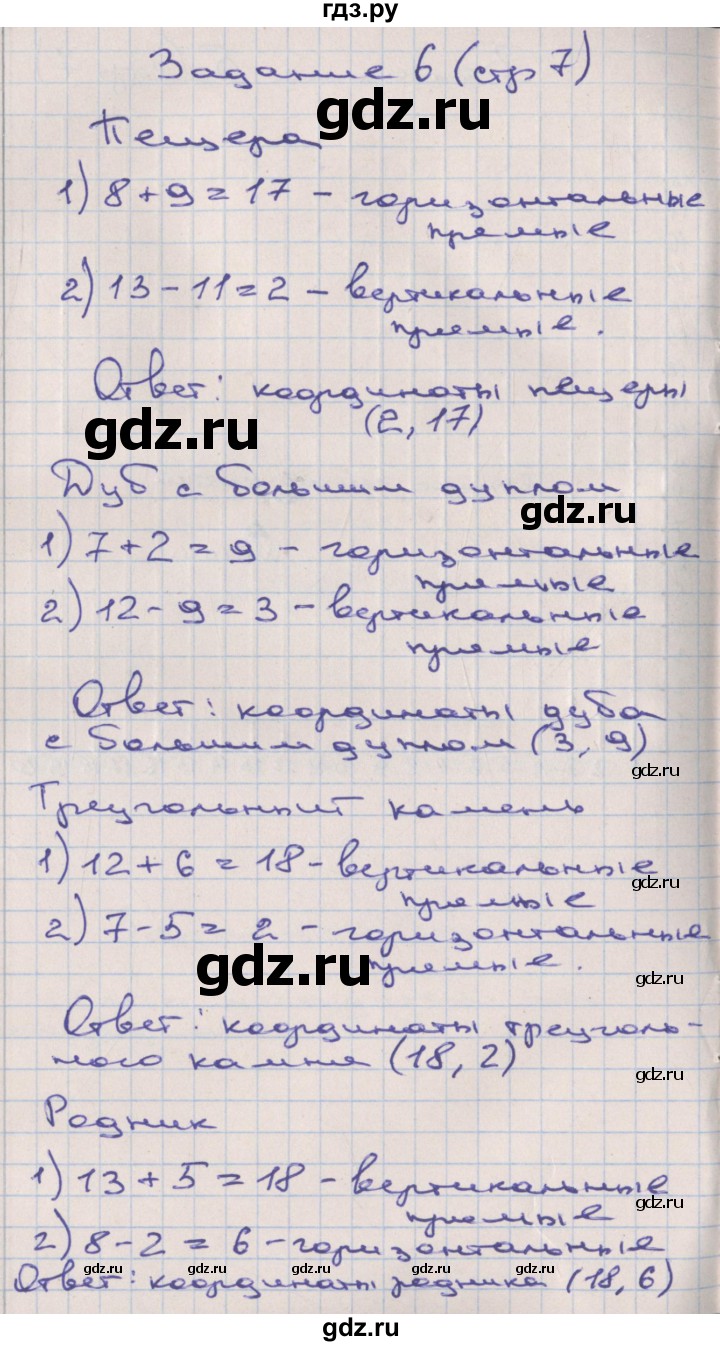 гдз.ру
Задание 6 (стр 7)
gdz.ru
Пещера
1) 8 + 9 = 17 - горизонтальные
прямые
2) 13 - 11 = 2 - вертикальные
прямые.
Ответ: координаты пещеры
(2, 17)
gdz.ru
Дуб с большим дуплом
gdz.ru
1) 7 + 2 = 9 - горизонтальные
прямые
2) 12 - 9 = 3 - вертикальные
прямые
Ответ: координаты дуба
с большим дуплом (3, 9)
gdz.ru
Треугольный камень
1) 12 + 6 = 18 - вертикальные
gdz.ru
прямые
2) 7 - 5 = 2 - горизонтальные
прямые.
gdz.ru
gdz.ru
Ответ: координаты треуголь-
ного камня (18, 2)
gdz.ru
Родник
1) 13 + 5 = 18 - вертикальные
прямые
2) 8 - 2 = 6 - горизонтальные
Ответ: координаты родника (18, 6)
gdz.ru gdz.ru gdz.ru gdz.ru gdz.ru
gdz.ru